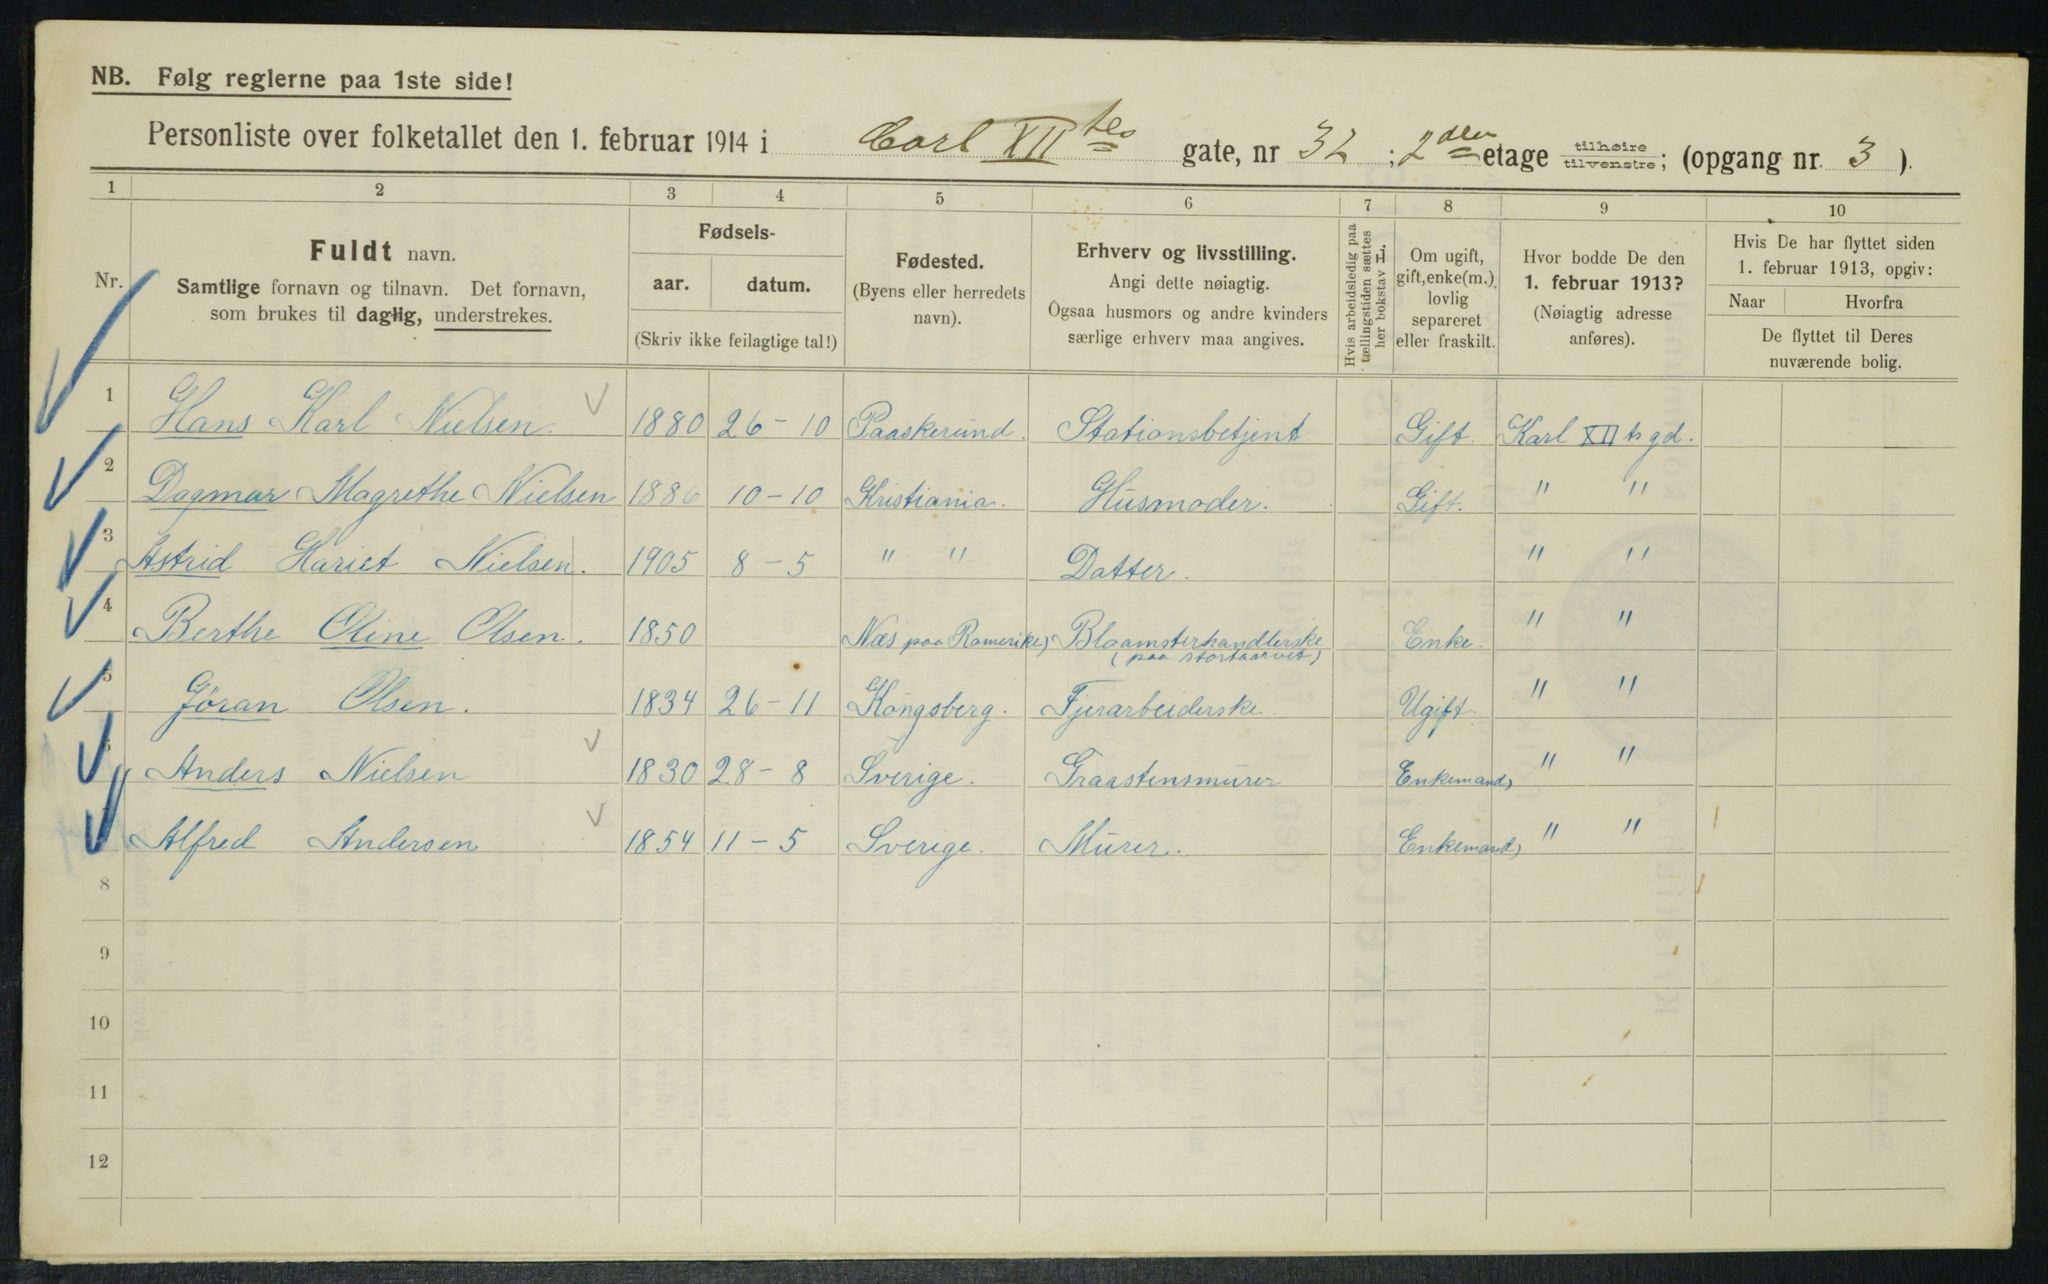 NB. Følg reglerne paa 1ste side!
Personliste over folketallet den 1. februar 1914 i Carl XII tes gate, nr 32 ; 2den etage tilhøire/tilvenstre; (opgang nr. 3 ).
1 2 3 4 5 6 7 8 9 10
Nr.
Fuldt navn.
Samtlige fornavn og tilnavn. Det fornavn,
som brukes til daglig, understrekes.
Fødsels-
aar. datum.
(Skriv ikke feilagtige tal!)
Fødested.
(Byens eller herredets
navn).
Erhverv og livsstilling.
Angi dette nøiagtig.
Ogsaa husmors og andre kvinders
særlige erhverv maa angives.
Hvis arbeidsledig paa
tællingstiden sættes
her bokstav L.
Om ugift,
gift, enke(m.),
lovlig
separeret
eller fraskilt.
Hvor bodde De den
1. februar 1913?
(Nøiagtig adresse
anføres).
Hvis De har flyttet siden
1. februar 1913, opgiv:
Naar Hvorfra
De flyttet til Deres
nuværende bolig.
1 Hans Karl Nielsen. 1880 26-10 Paaskerund. Stationsbetjent. Gift. Karl XII ts gd.
2 Dagmar Magrethe Nielsen 1886 10-10 Kristiania. Husmoder. Gift. " "
3 Astrid Hariet Nielsen. 1905 8-5 " " Datter. " "
4 Berthe Oline Olsen. 1850 Næs paa Romerike) Bloamsterhandlerske Enke. " "
(paa stortaarvet)
5 Jøran Olsen. 1834 26-11 Kongsberg. Fjerarbeiderske Ugift. " "
6 Anders Nielsen 1830 28-8 Sverige. Graastensmurer Enkemand) " "
Alfred Andersen 1854 11-5 Sverige. Murer. Enkemand) " "
8
9
10
11
12